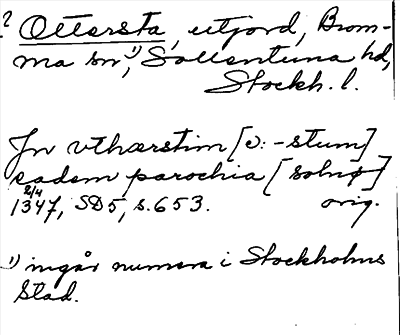 ? Ottersta, utjord, Brom-
ma sn¹⁾, Sollentuna hd,
Stockh. l.
In vthærstim [ɔ: -stum]
eadem parochia [solnø]
2/4
1347, SD5, s. 653. orig.
¹⁾ ingår numera i Stockholms
stad.